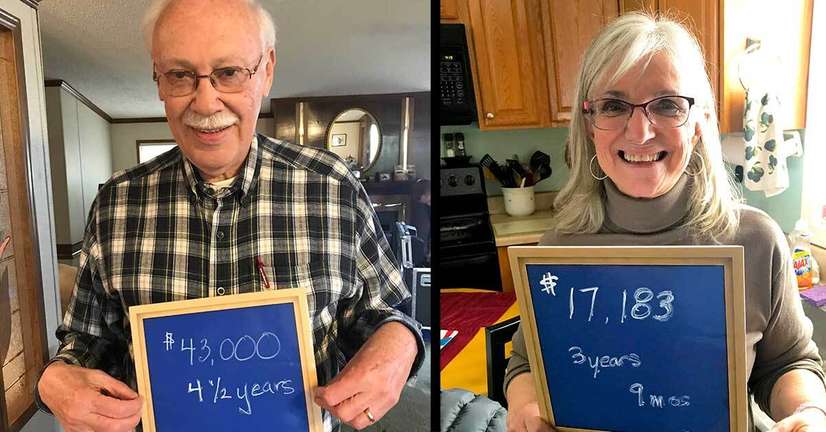 $43,000
4 1/2 years
$17,183
3 years
9 mos
AJAX